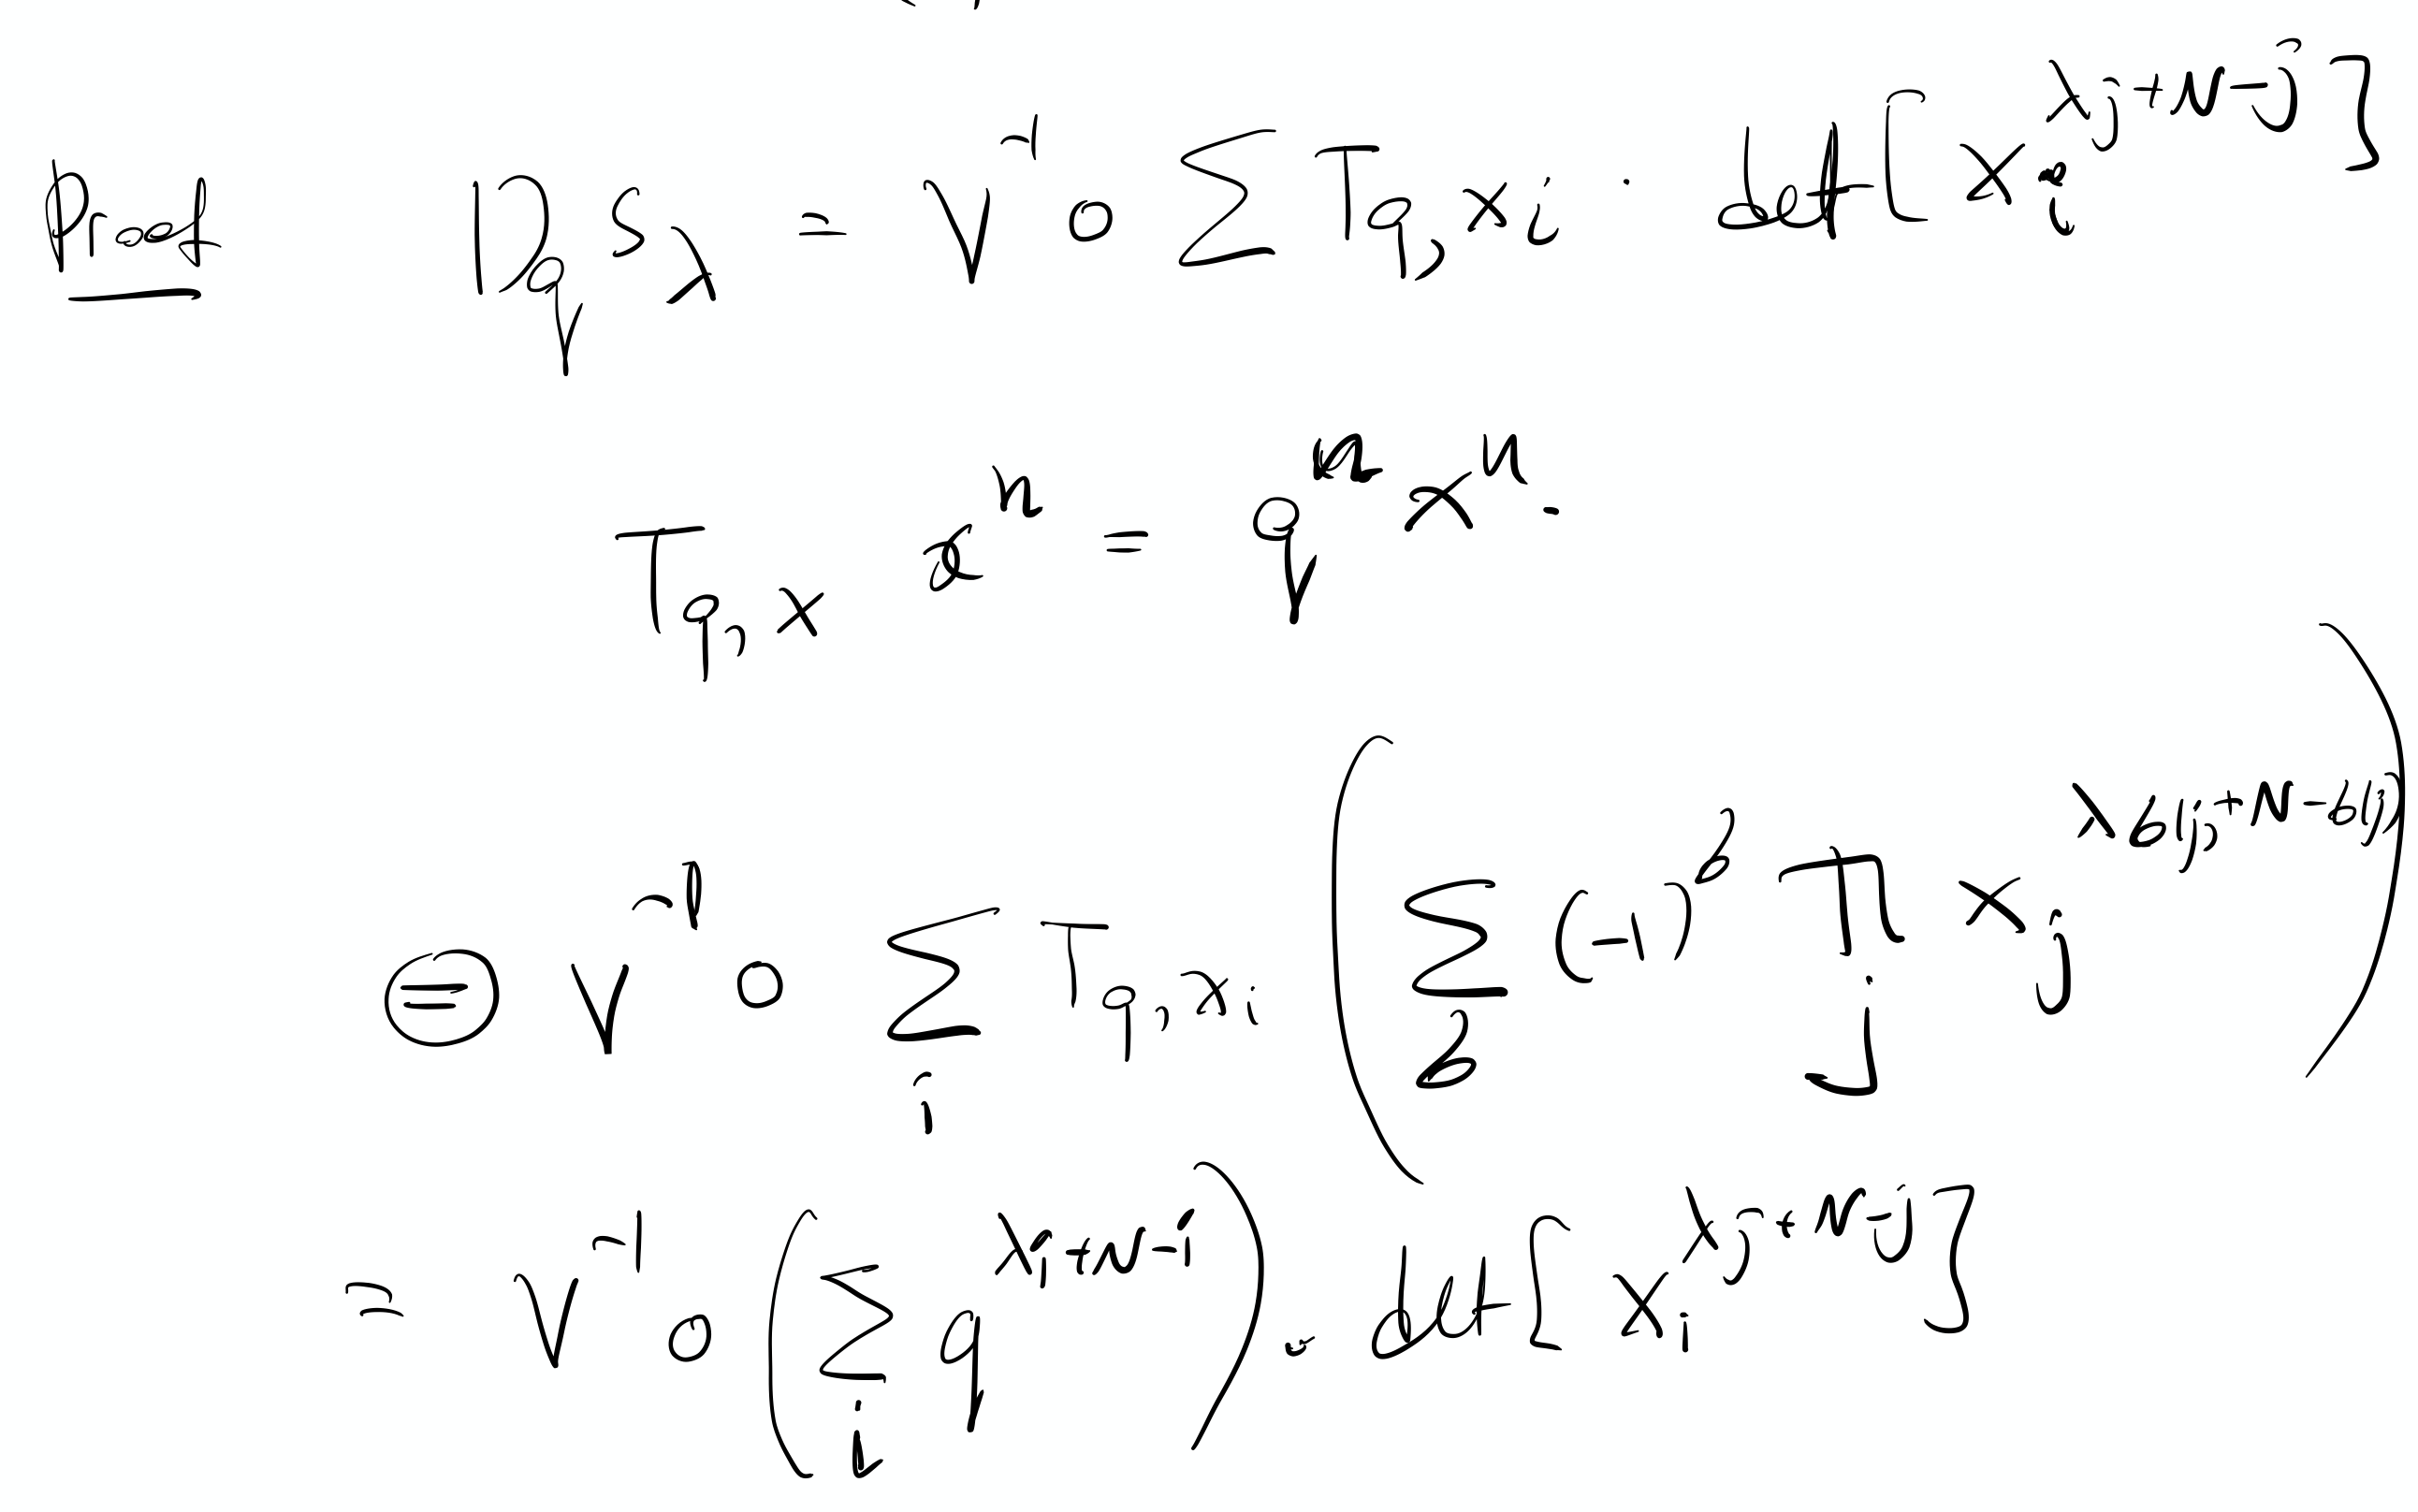 Proof D_q s_λ = V^{-1} ∘ Σ T_{q,x_i} · det[ x_i^{λ_j+N-j} ]
T_{q,x} x^n = q^n x^n.
⊜ V^{-1} ∘ Σ_i T_{q,x_i} ( Σ_σ (-1)^σ Π_j x_j^{λ_{σ(j)}+N-σ(j)} )
= V^{-1} ∘ ( Σ_i q^{λ_i+N-i} ) · det[ x_i^{λ_j+N-j} ]